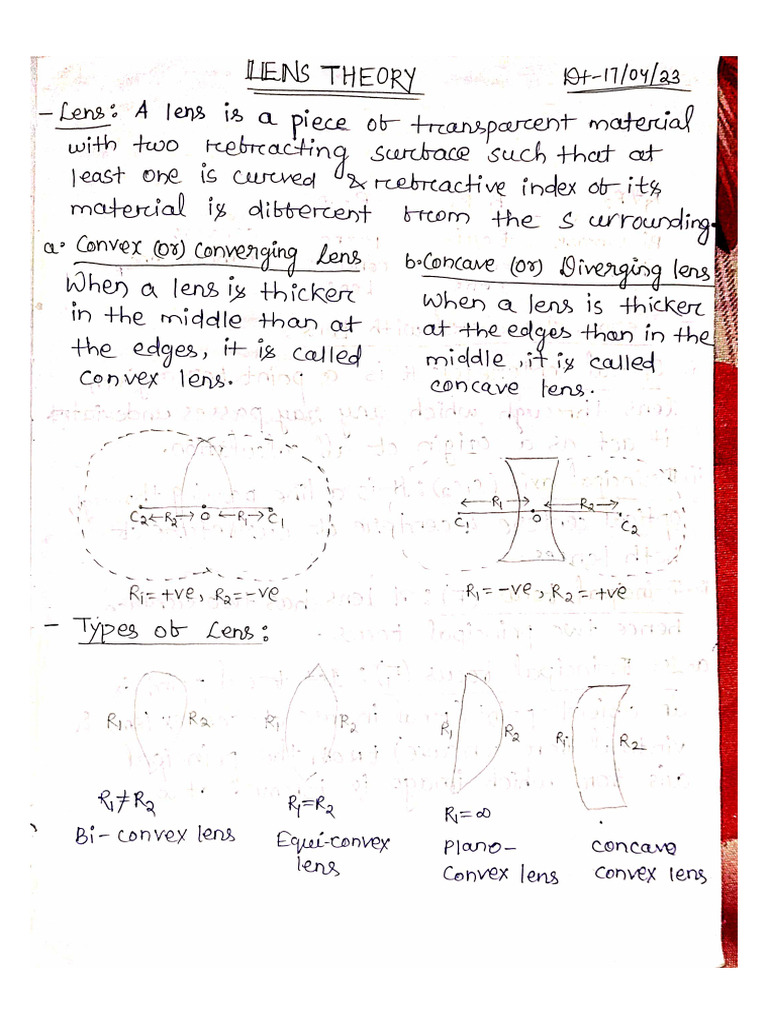 LENS THEORY
Dt-17/04/23
- Lens: A lens is a piece of transparent material
with two refracting surface such that at
least one is curved & refractive index of its
material is different from the surrounding.
a. Convex (or) Converging Lens
When a lens is thicker
in the middle than at
the edges, it is called
convex lens.
b. Concave (or) Diverging lens
When a lens is thicker
at the edges than in the
middle, it is called
concave lens.
C2 ←R2→ O ←R1→ C1
R1=+ve, R2=-ve
←R1→ ←R2→
C1 O C2
R1=-ve, R2=+ve
- Types of Lens:
R1 R2
R1≠R2
Bi-convex lens
R1 R2
R1=R2
Equi-convex
lens
R1 R2
R1=∞
Plano-
convex lens
R1 R2
concave
convex lens